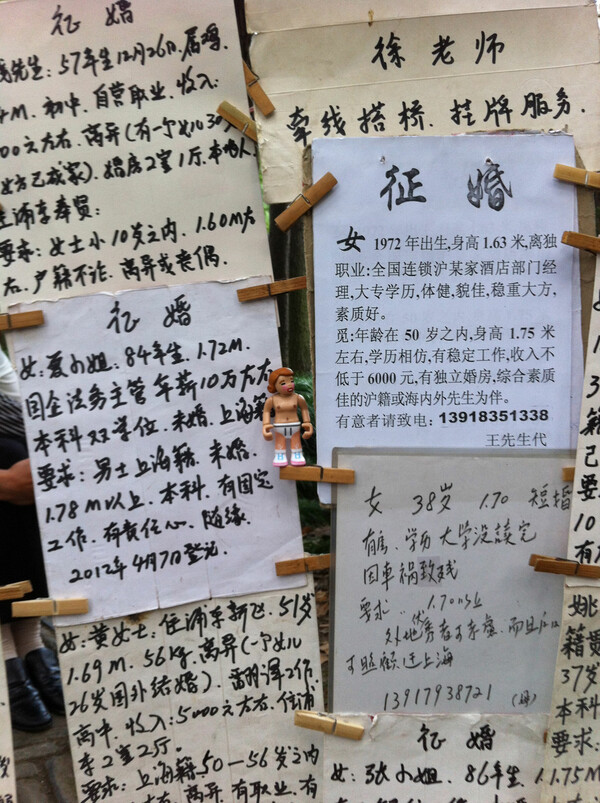 征 婚
先生:57年生12月26日.属鸡.
M.初中.自营职业.收入:
00元左右.离异(有一个女儿30
女方已成家).婚房2室1厅.本地人
浦东奉贤:
要求:女士小10岁之内.1.60M左
右.户籍不论.离异或丧偶.
徐老师
牵线搭桥.挂牌服务.
征 婚
女 1972年出生,身高1.63米,离独
职业:全国连锁沪某家酒店部门经
理,大专学历,体健,貌佳,稳重大方,
素质好。
觅:年龄在50岁之内,身高1.75米
左右,学历相仿,有稳定工作,收入不
低于6000元,有独立婚房,综合素质
佳的沪籍或海内外先生为伴。
有意者请致电:13918351338
王先生代
征 婚
女:小姐:84年生.1.72M.
国企法务主管 年薪10万左右
本科双学位.未婚.上海籍
要求:男士上海籍.未婚.
1.78M以上.本科.有固定
工作.有责任心.随缘.
2012年4月7日登记.
女 38岁 1.70 短婚
学历 大学没读完
因车祸致残
要求:1.70以上
外地优秀者可考虑.而且
可照顾迁上海
13917938721 (母)
女:黄女士:住浦东新区.51岁
1.69M.56kg.离异(一个女儿
26岁国外结婚).翻译工作.
高中.收入:5000元左右.住浦
东2室2厅.
要求:上海籍.50—56岁之内
左右.离异.有职业.有
征 婚
女:张小姐.86年生.1.75M
姚
籍贯
37岁
本科
要求: